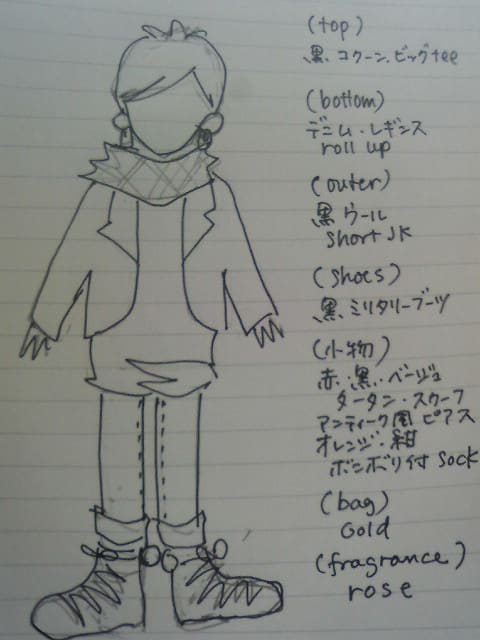 (top)
黒 コクーン.ビッグtee
(bottom)
デニム・レギンス
roll up
(outer)
黒 ウール
short JK
(shoes)
黒 ミリタリーブーツ
(小物)
赤.黒.ベージュ
タータン・スクーフ
アンティーク風 ピアス
オレンジ・紺
ボンボリ付 sock
(bag)
Gold
(fragrance)
rose